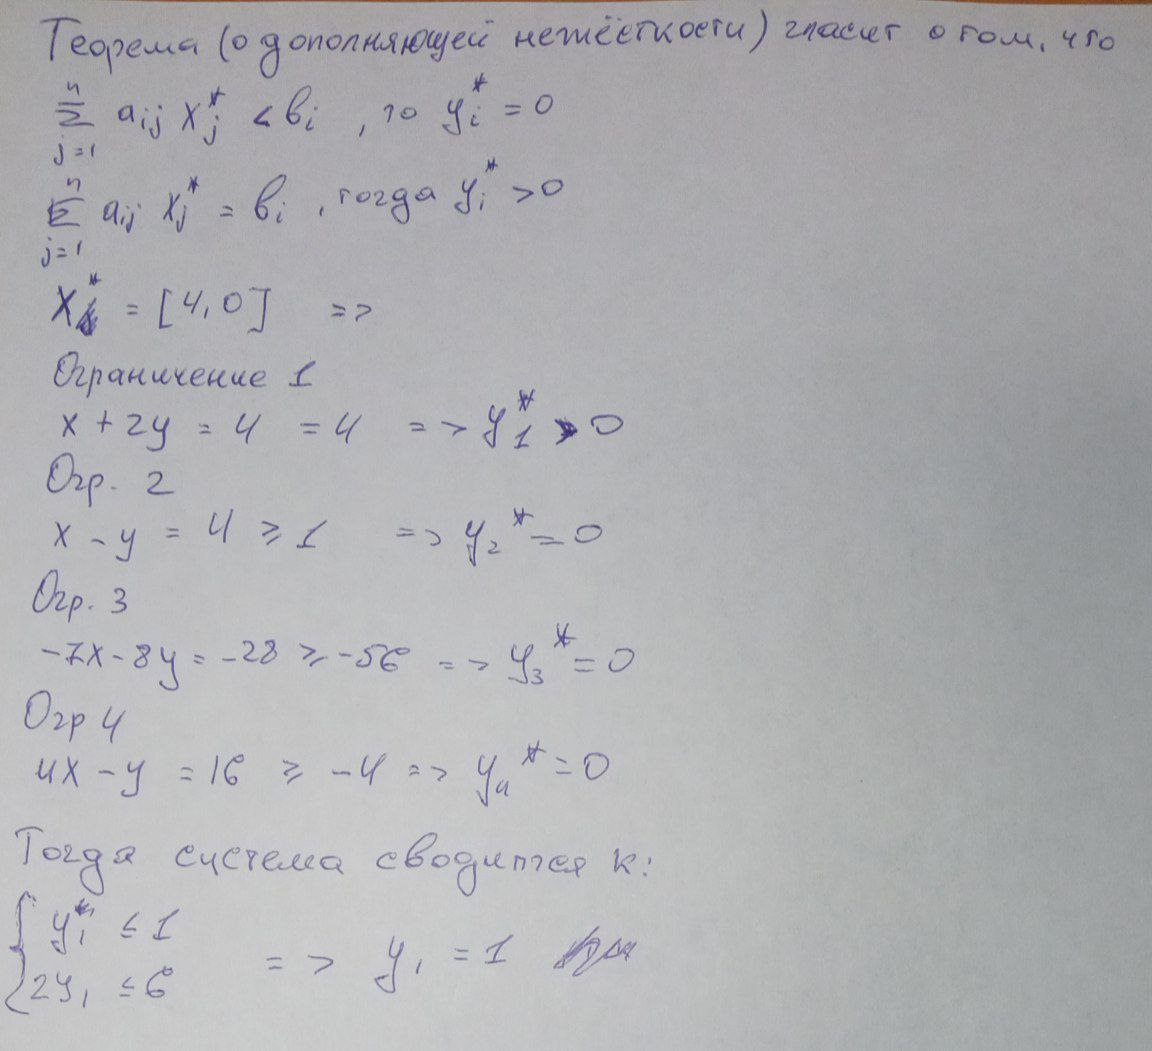 Теорема (о дополняющей нежёсткости) гласит о том, что
n
Σ aij xj* < bi , то yi* = 0
j=1
n
Σ aij xj* = bi , тогда yi* > 0
j=1
X* = [4,0] =>
Ограничение 1
x + 2y = 4 = 4 => y1* > 0
Огр. 2
x - y = 4 ≥ 1 => y2* = 0
Огр. 3
-7x - 8y = -28 ≥ -56 => y3* = 0
Огр 4
4x - y = 16 ≥ -4 => y4* = 0
Тогда система сводится к:
{ y1* ≤ 1
2y1 ≤ 6 => y1 = 1